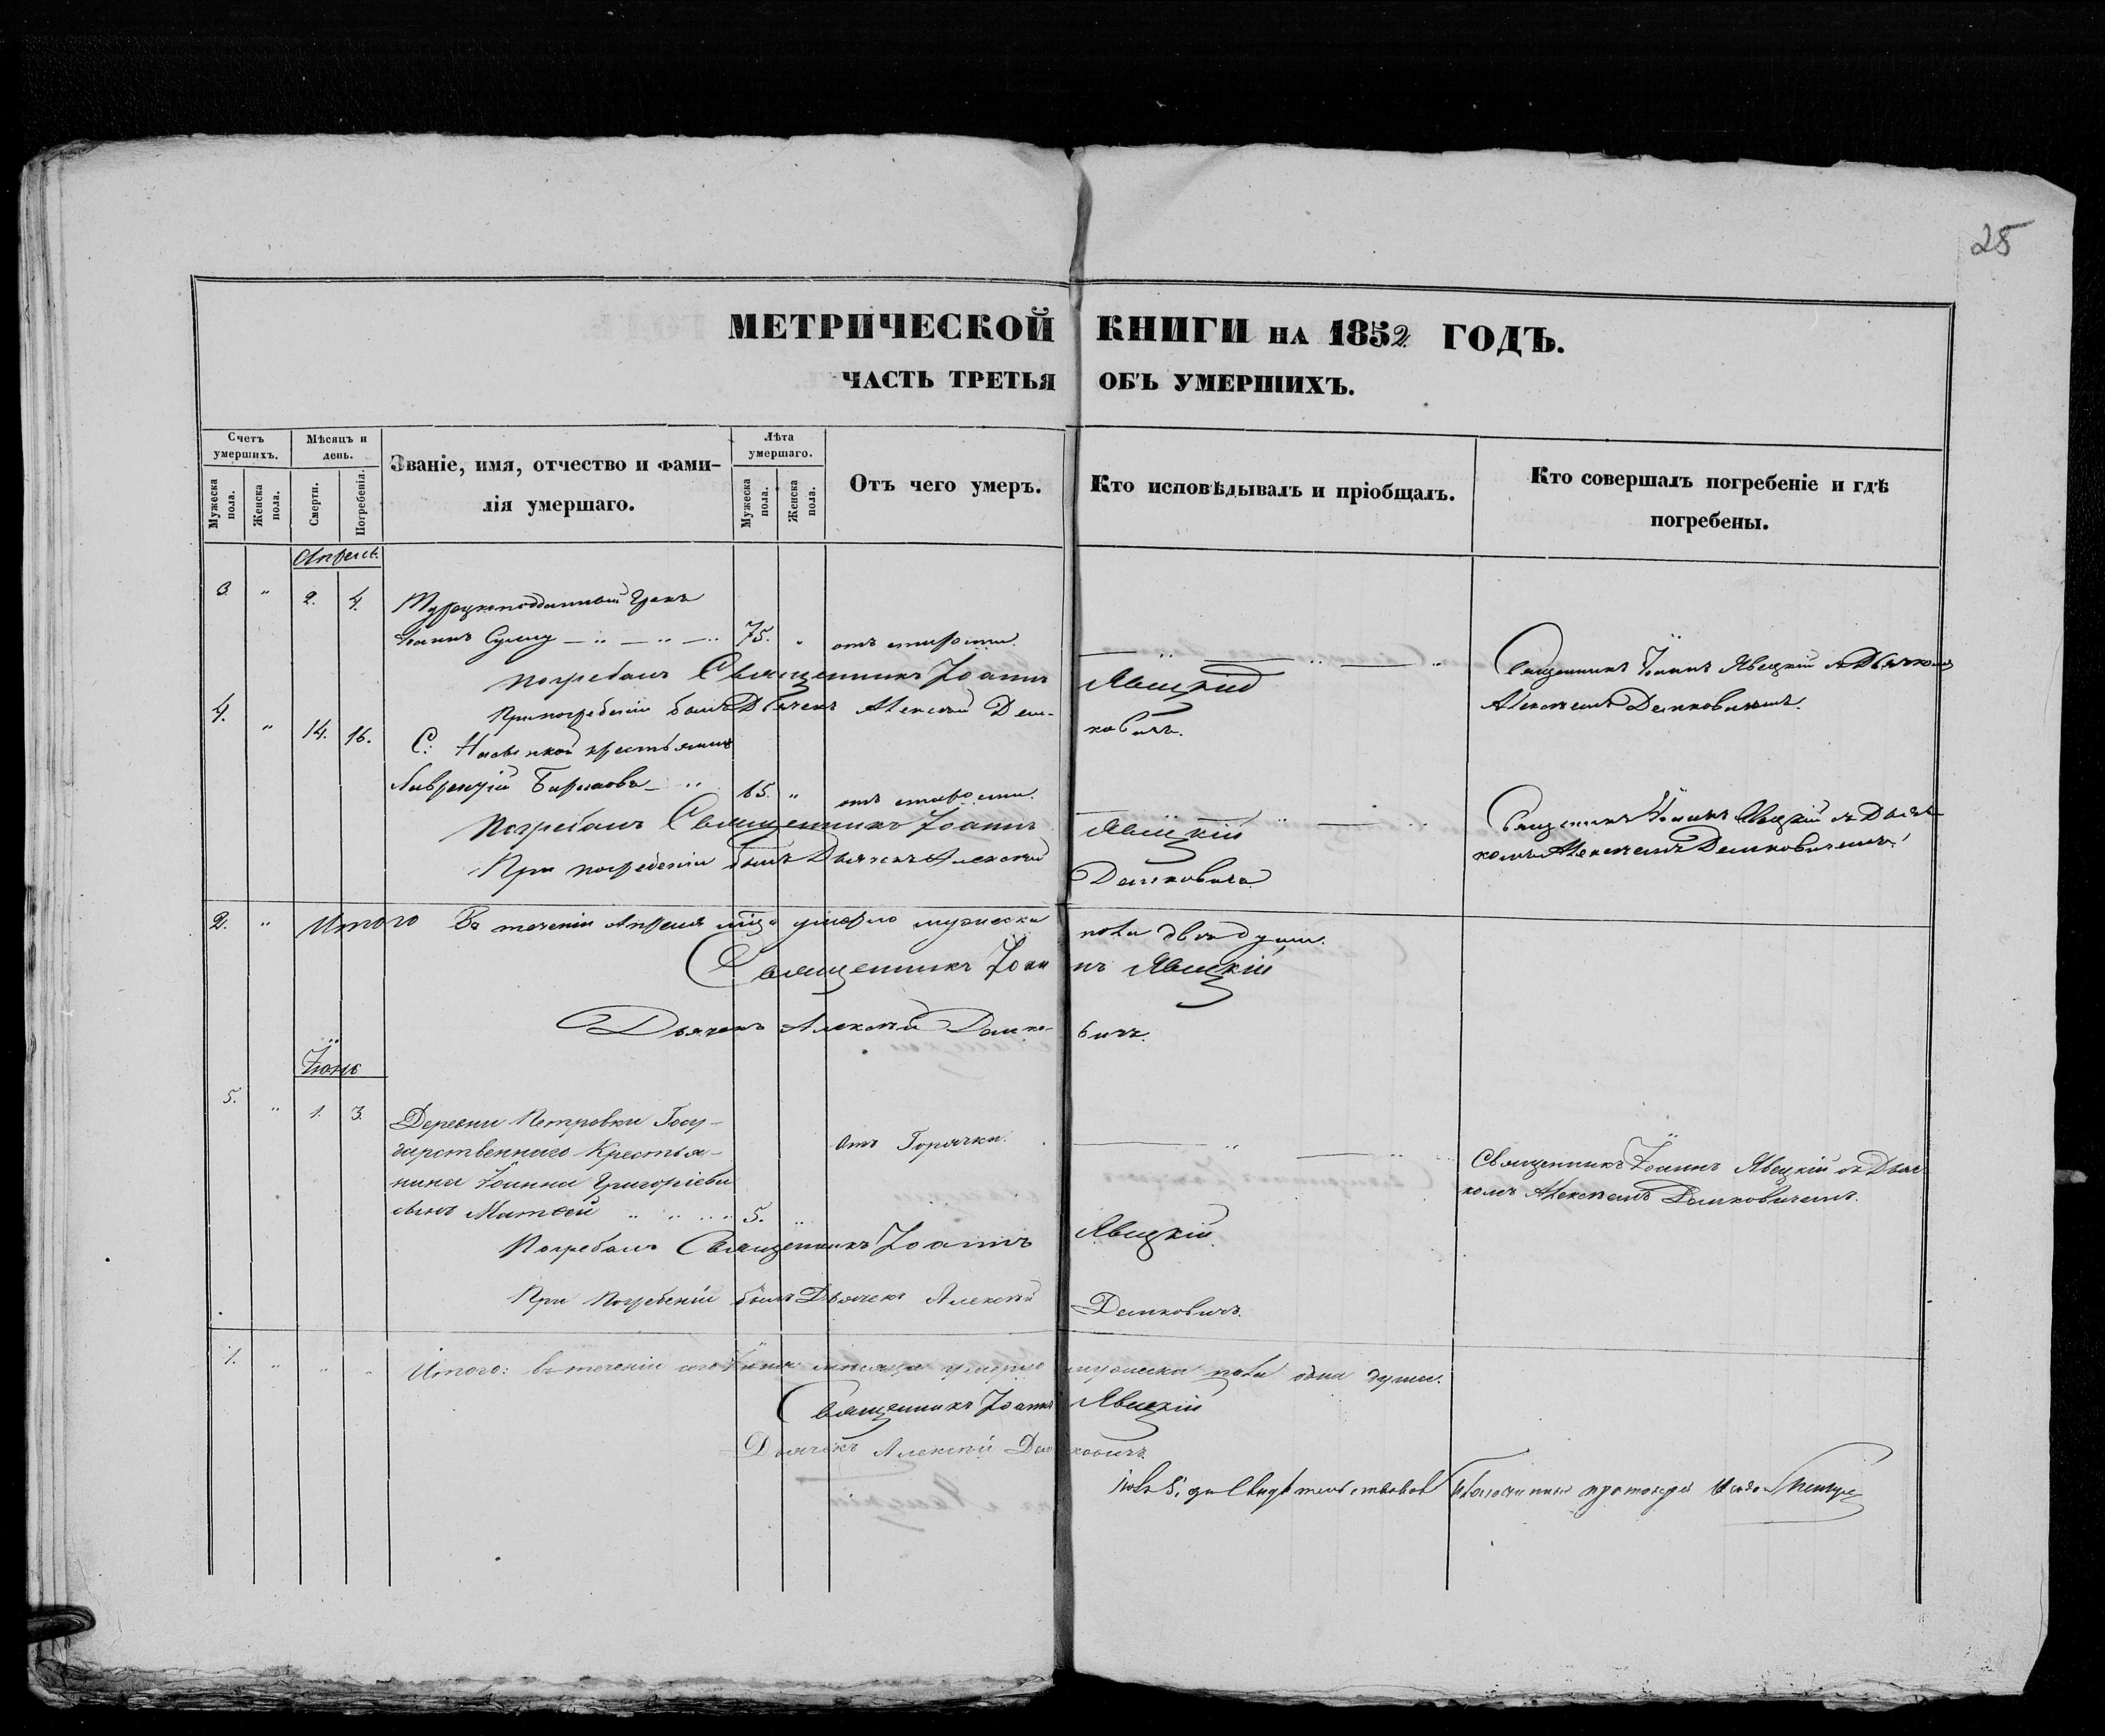 25
МЕТРИЧЕСКОЙ КНИГИ НА 1852 ГОДЪ.
ЧАСТЬ ТРЕТЬЯ ОБЪ УМЕРШИХЪ.
Счетъ умершихъ.
Мужеска пола.
Женска пола.
Мѣсяцъ и день.
Смерти.
Погребенія.
Званіе, имя, отчество и фами-
лія умершаго.
Лѣта умершаго.
Мужеска пола.
Женска пола.
Отъ чего умеръ.
Кто исповѣдывалъ и пріобщалъ.
Кто совершалъ погребеніе и гдѣ
погребены.
3. " 2. 4. Турецкоподданный Грекъ
Іоаннъ 75. " отъ старости.
Священникъ Іоаннъ Явецкій съ Дьячкомъ
Алексѣемъ Демковичемъ.
Погребалъ Священникъ Іоаннъ Явецкій
При погребеніи былъ Дьячекъ Алексѣй Дем-
ковичъ.
4. " 14. 16. С. крестьянинъ
Лаврентій 65. " отъ старости.
Священникъ Іоаннъ Явецкій съ Дьяч-
комъ Алексѣемъ Демковичемъ.
Погребалъ Священникъ Іоаннъ Явецкій
При погребеніи былъ Дьячекъ Алексѣй Демковичъ
2. " Итого Въ теченіи Апреля мца умерло мужеска пола двѣ души.
Священникъ Іоаннъ Явецкій
Дьячекъ Алексѣй Демко-
вичъ.
Іюнь
5. " 1. 3. Деревни Петровки Госу-
дарственнаго Крестья-
нина Іоанна Григоріева
сынъ Матѳей 5. " Отъ Горячки.
Священникъ Іоаннъ Явецкій съ Дьяч
комъ Алексѣемъ Демковичемъ.
Погребалъ Священникъ Іоаннъ Явецкій
При погребеніи былъ Дьячекъ Алексѣй Демковичъ.
1. " " " Итого: въ теченіи сего Іюня месяца умерло мужеска пола одна душа.
Священникъ Іоаннъ Явецкій
Дьячекъ Алексѣй Демковичъ.
Благочинный протоіерей